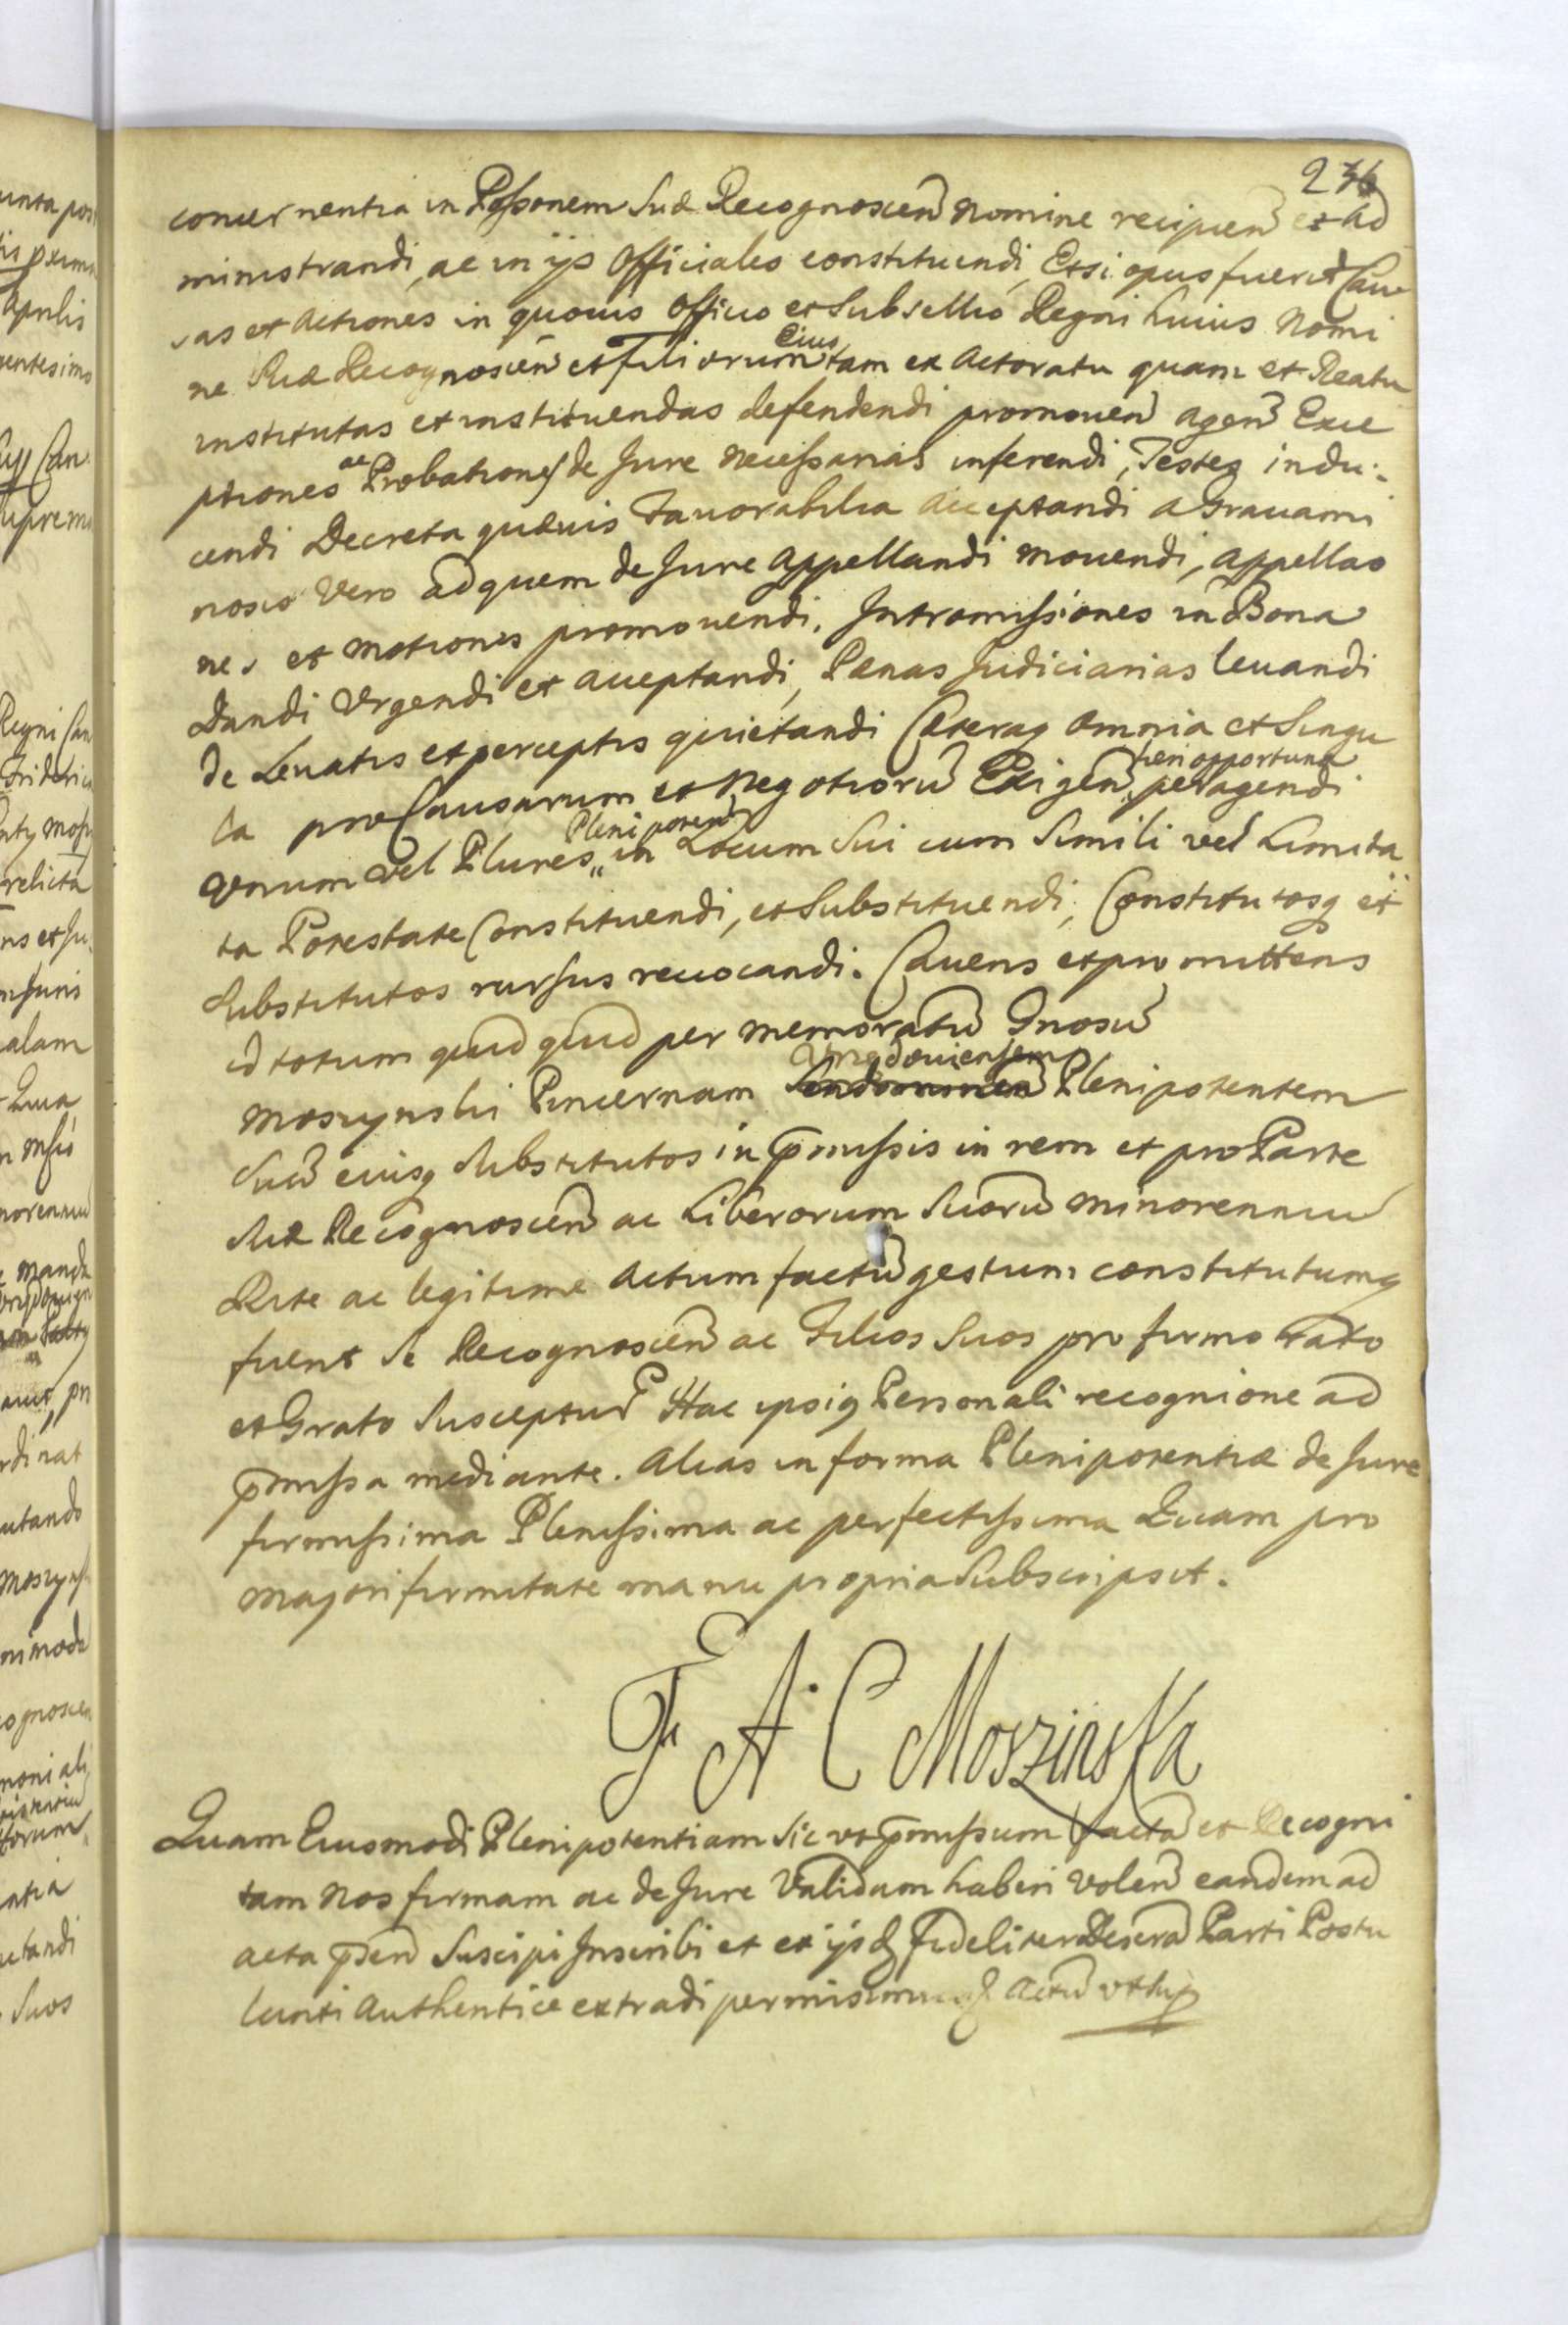 236
concernentia in Possonem Suæ Recognoscen nomine recipien et ad
ministrandi, ac in ijs Officiales constituendi, Et si opus fuerit Cau
sas et Actiones in quouis Officio et Subsellio Regni huius Nomi
ne Suæ Recognoscen et filiorum Eius tam ex Actoratu quam et Reatu
institutas et instituendas defendendi promouen agen Exce
ptiones ac Probationes de Jure necessarias inferendi, Testes indu:
cendi Decreta quæuis Fauorabilia acceptandi a Grauami
nosis Vero ad quem de Jure Appellandi mouendi, appellao
nes et motiones promouendi, Intromissiones in Bona
Dandi Vrgendi et acceptandi, Pænas Judiciarias leuandi
de Leuatis et perceptis quietandi Cæteraq omnia et Singu
la pro Causarum et Negotiorū Exigen fieri opportuna peragendi
Vnum vel Plures Plenipoten in Locum Sui cum Simili vel Limita
ta Potestate Constituendi, et Substituendi, Constitutosq et
Substitutos rursus reuocandi. Cauens et promittens
id totum quid quid per memoratū Gnosū
Moszynski Pincernam Plenipotentem
Suū eiusq Substitutos in pmissis in rem et pro Parte
Suæ Recognoscen ac Liberorum Suorū minorennium
Rite ac legitime Actum factū gestum constitutumq
fuerit Se Recognoscen ac Filios Suos pro firmo rato
et Grato Susceptur Hac ipsiq Personali recognione ad
pmissa mediante. Alias in forma Plenipotentiæ de Jure
firmissima Plenissima ac perfectissima Quam pro
majori firmitate manu propria Subscripsit.
F A C Moszinska
Quam Eiusmodi Plenipotentiam Sic vt pmissum factā et Recogni
tam nos firmam ac de Jure Validam haberi volen eandem ad
acta psen Suscipi Inscribi et ex ijsd fideliter Parti Postu
lanti Authentice extradi permisimus Actū vt sup